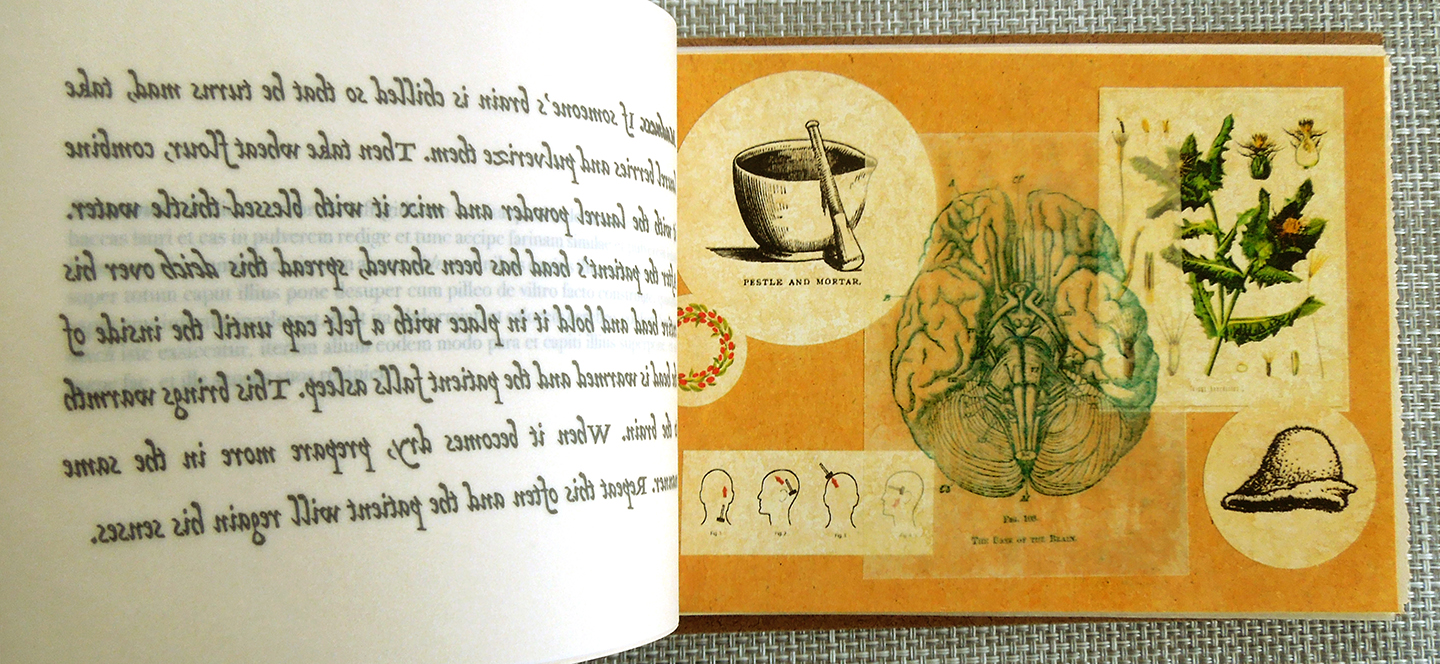 If someone's brain is chilled so that he turns mad, take
laurel berries and pulverize them. Then take wheat flour, combine
it with the laurel powder and mix it with blessed-thistle water.
After the patient's head has been shaved, spread this deich over his
head and hold it in place with a felt cap until the inside of
head is warmed and the patient falls asleep. This brings warmth
the brain. When it becomes dry, prepare more in the same
manner. Repeat this often and the patient will regain his senses.
baccas lauri et eas in pulverem redige et tunc accipe farinam
super totum caput illius pone desuper cum pilleo de viltro facto
iste exsiccatur, eodem modo para et capiti illius
PESTLE AND MORTAR.
Fig. 1
Fig. 2
Fig. 3
FIG. 108.
THE BASE OF THE BRAIN.